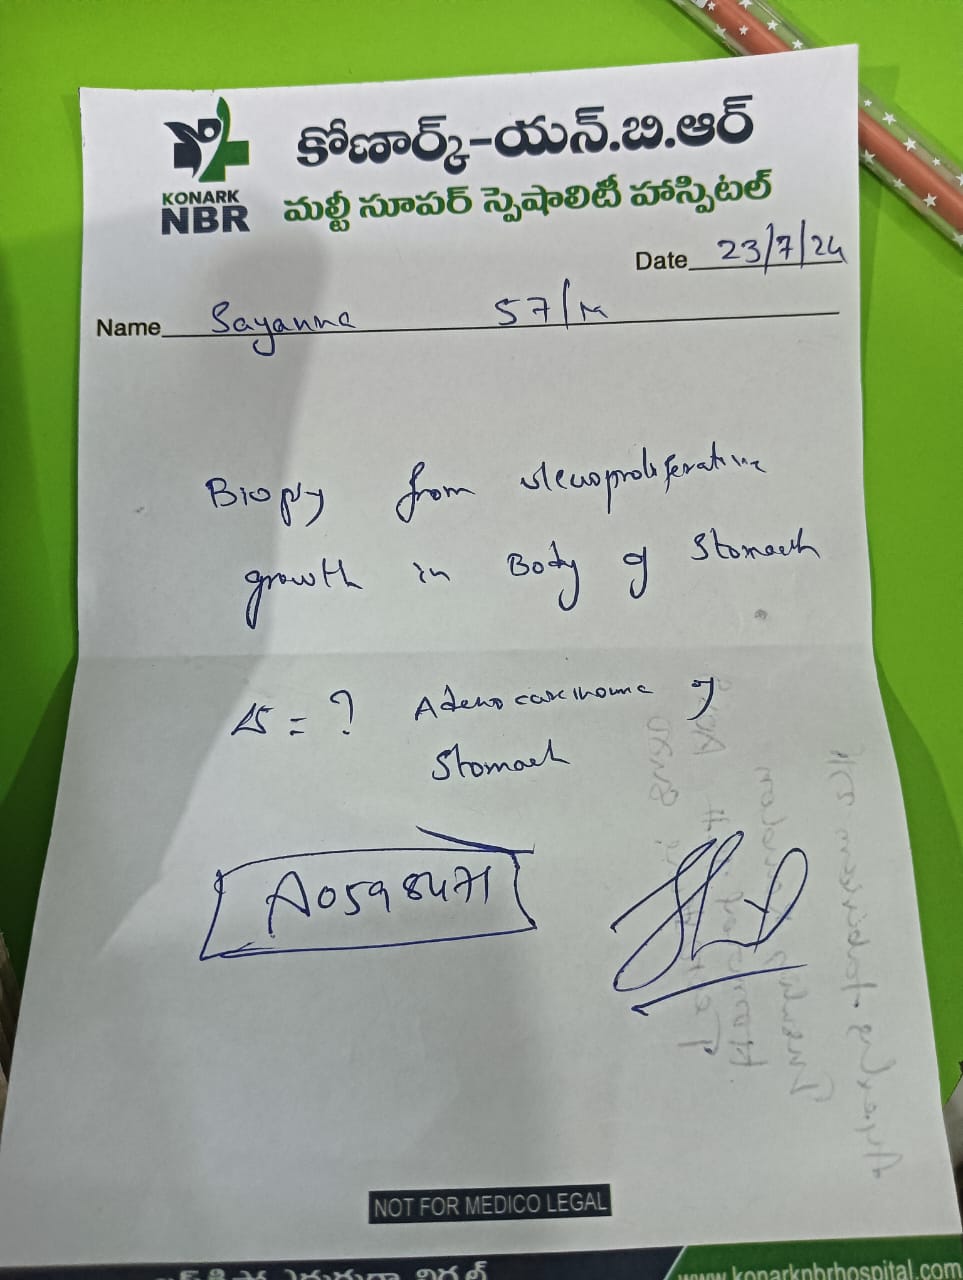 కోణార్క్-యన్.బి.ఆర్
KONARK
NBR
మల్టీ సూపర్ స్పెషాలిటీ హాస్పిటల్
Date 23/7/24
Name Sayanna 57/M
Biopsy from ulceroproliferative
growth in Body of Stomach
= ? Adenocarcinoma of
Stomach
A0598471
NOT FOR MEDICO LEGAL
www.konarknbrhospital.com